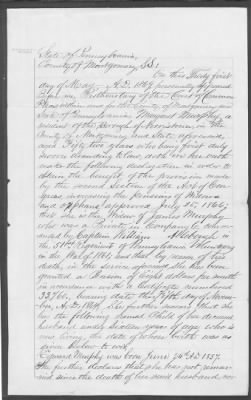 State of Pennsylvania,
County of Montgomery, SS:
On this Thirty first
day of May A.D. 1869 personally appeared
before me, Prothonotary of the Court of Common
Pleas within and for the County of Montgomery and
State of Pennsylvania, Margaret Murphy a
resident of the Borough of Norristown, in the
County of Montgomery and State aforesaid,
aged Fifty two years who being first duly
sworn according to law, doth on her oath
make the following declaration in order to
obtain the benefit of the provision made
by the second section of the Act of Con-
gress increasing the pensions of Widows
and orphans approved July 25, 1866;
that she is the Widow of James Murphy,
who was a Private in Company commanded
by Captain William
51st Regiment of Pennsylvania Volunteers
in the War of 1861; and that by reason of his
death, in the service aforesaid she has been
granted a pension of Eight dollars per month
in accordance with a Certificate numbered
33760, bearing date the Fifth day of Novem-
ber, A.D. 1864. She further states that she
has the following named Child of her deceased
husband under sixteen years of age who is
now living the date of whose birth was as
given below to wit,
Edward Murphy was born June 1857.
She further declares that she has not remar-
ried since the death of her said husband, nor